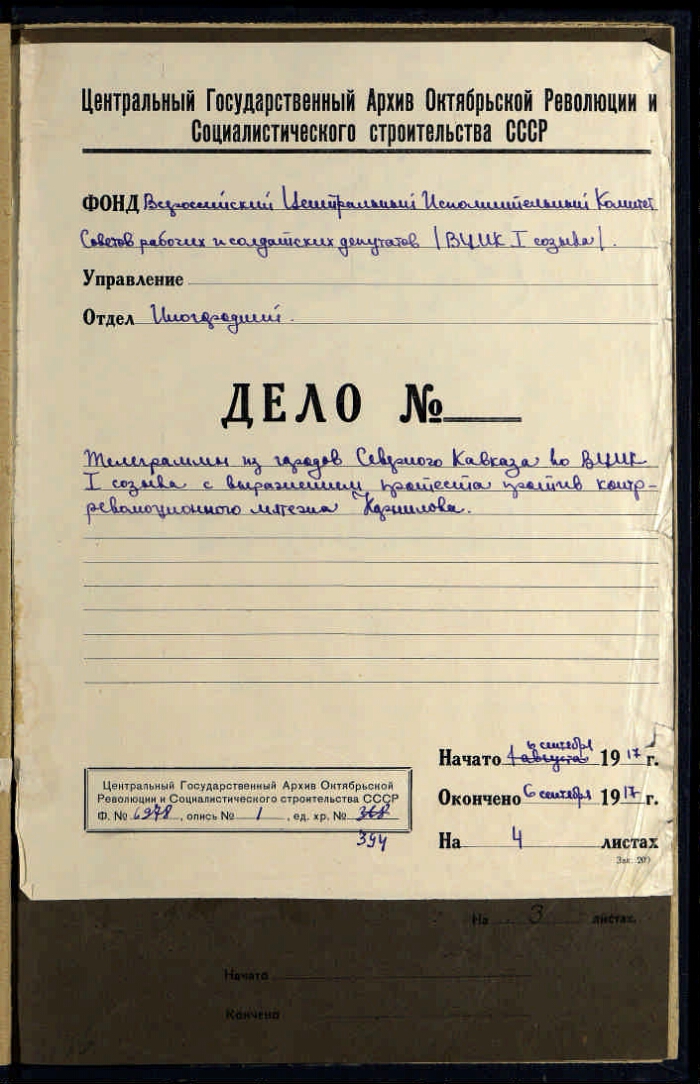 Центральный Государственный Архив Октябрьской Революции и
Социалистического строительства СССР
ФОНД Всероссийский Центральный Исполнительный Комитет
Советов рабочих и солдатских депутатов (ВЦИК I созыва).
Управление
Отдел Иногородний.
ДЕЛО №
Телеграммы из городов Северного Кавказа во ВЦИК
I созыва с выражением протеста против контр-
революционного мятежа Корнилова.
6 сентября
Начато 1 августа 1917 г.
Окончено 6 сентября 1917 г.
На 4 листах
Зак. 20
Центральный Государственный Архив Октябрьской
Революции и Социалистического строительства СССР
Ф. № 6978, опись № 1, ед. хр. № 368
394
На 3 листах.
Начато
Кончено